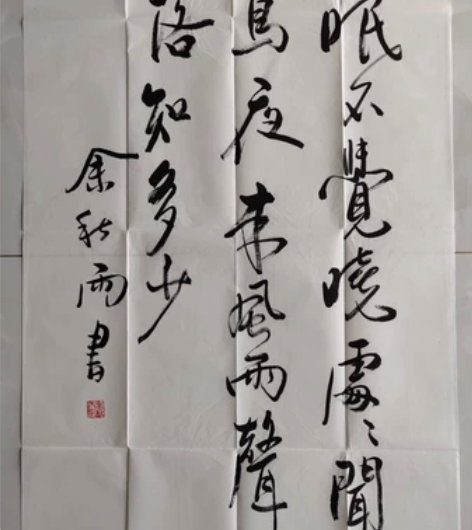 眠不覺曉處〻聞
鳥夜來風雨聲
落知多少
余秋雨書